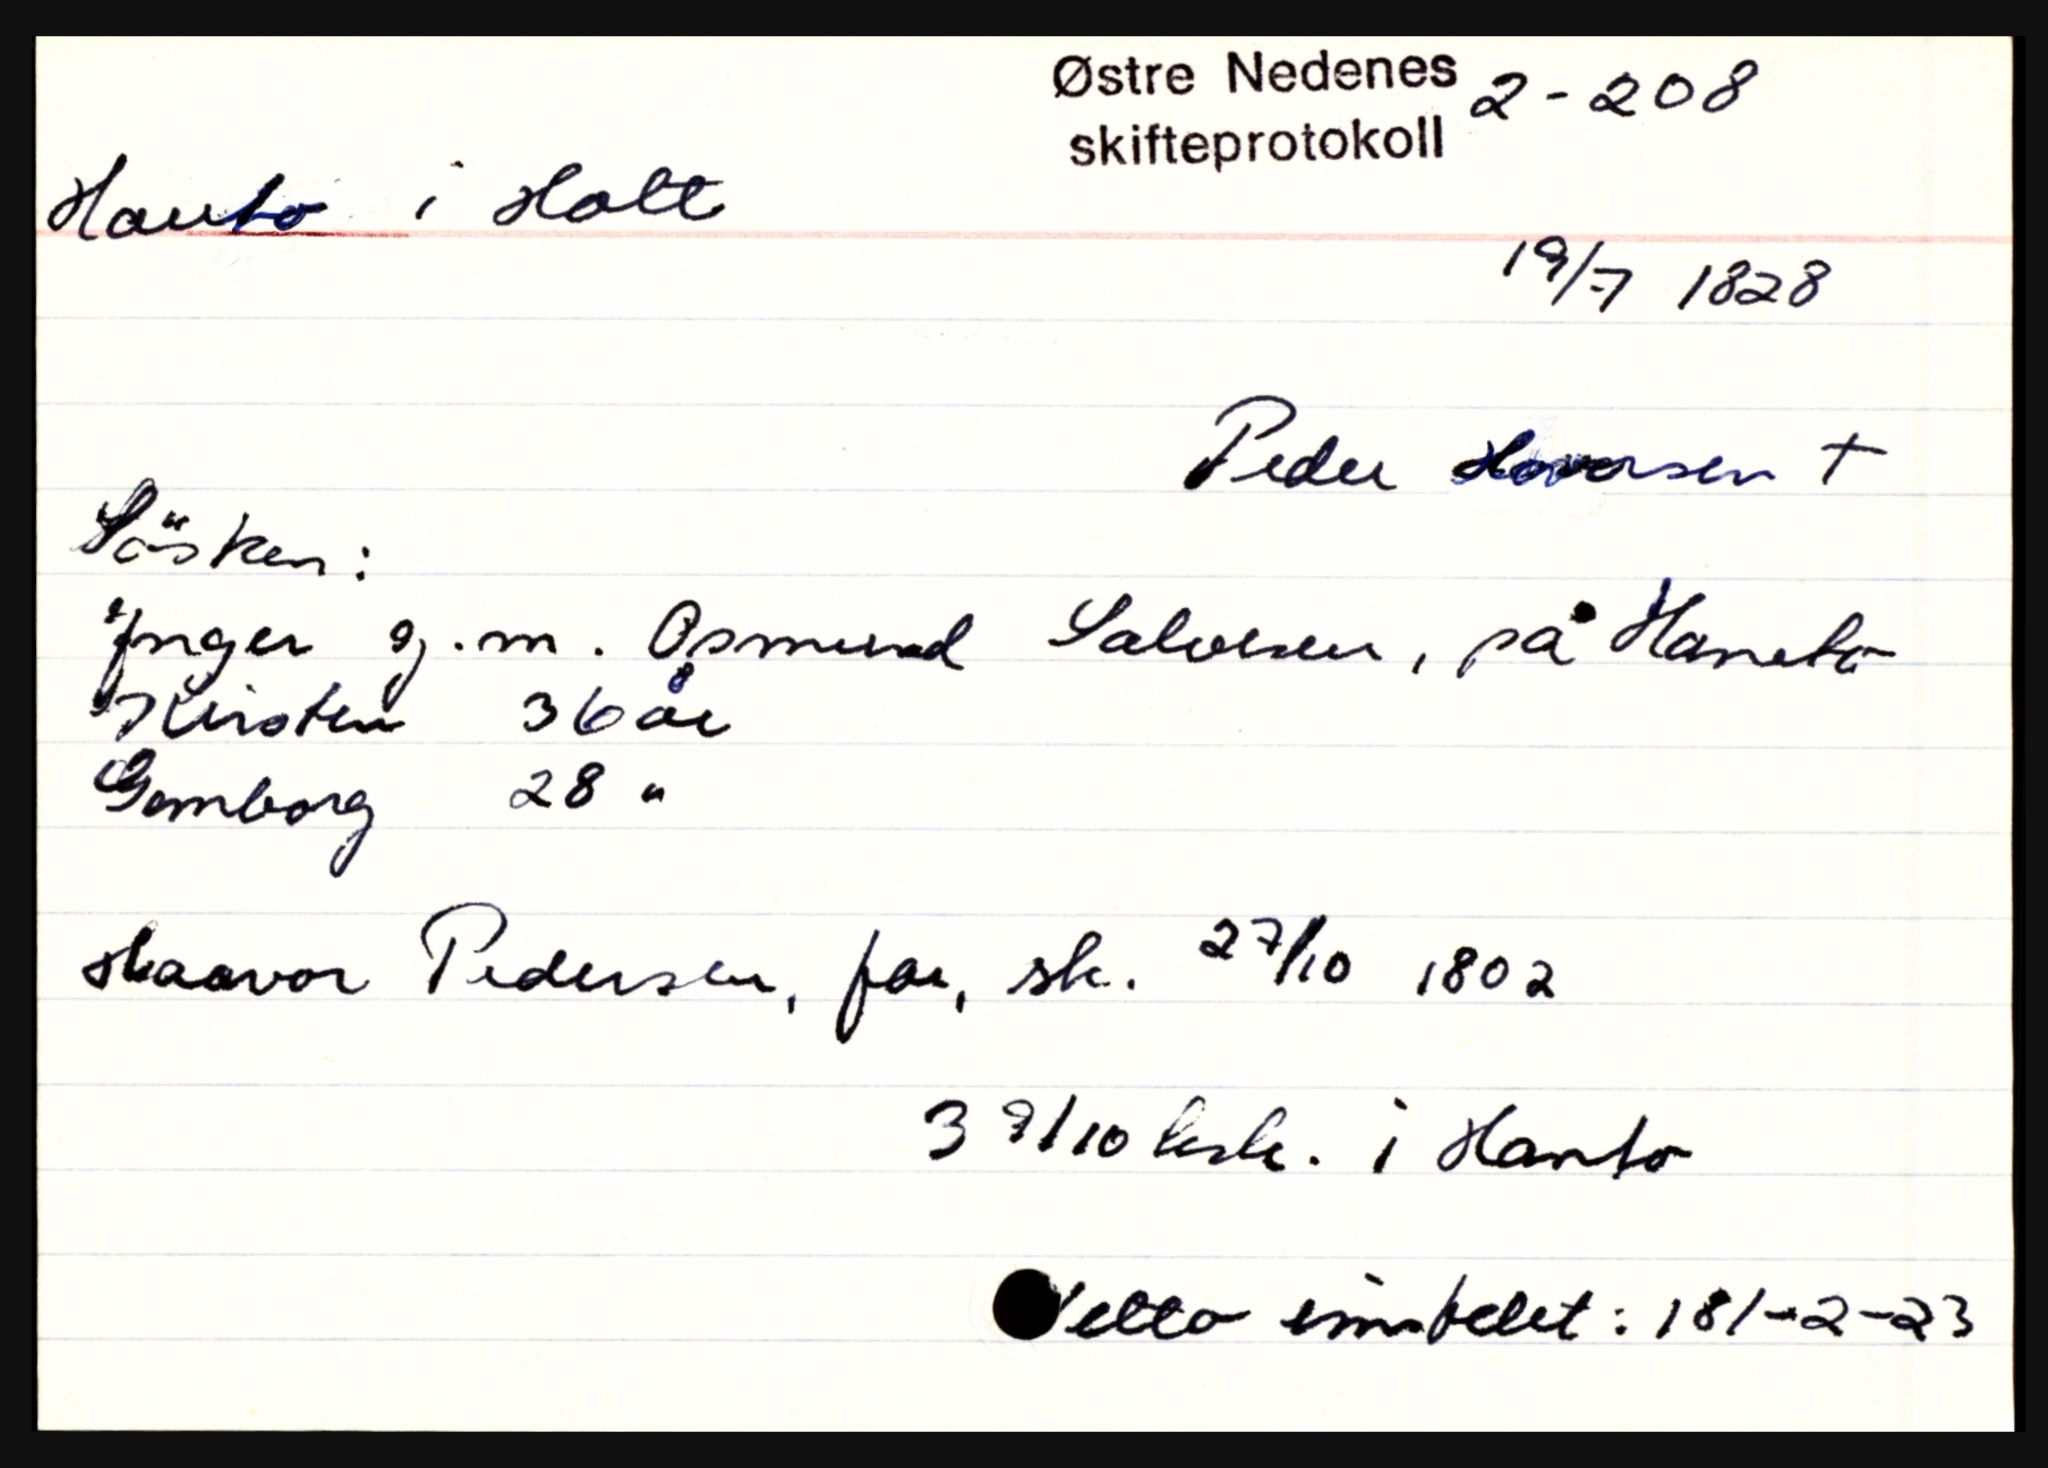 Østre Nedenes 2-208
skifteprotokoll
Hanto i Holt
19/7 1828
Peder Havorsen +
Søsken:
Inger g.m. Osmund Salvesen, på Haneto
Kirsten 36 år
Gomborg 28 "
Haavor Pedersen, far, sk. 27/10 1802
3 9/10 lisk. i Hanto
Netto innfelet: 181-2-23